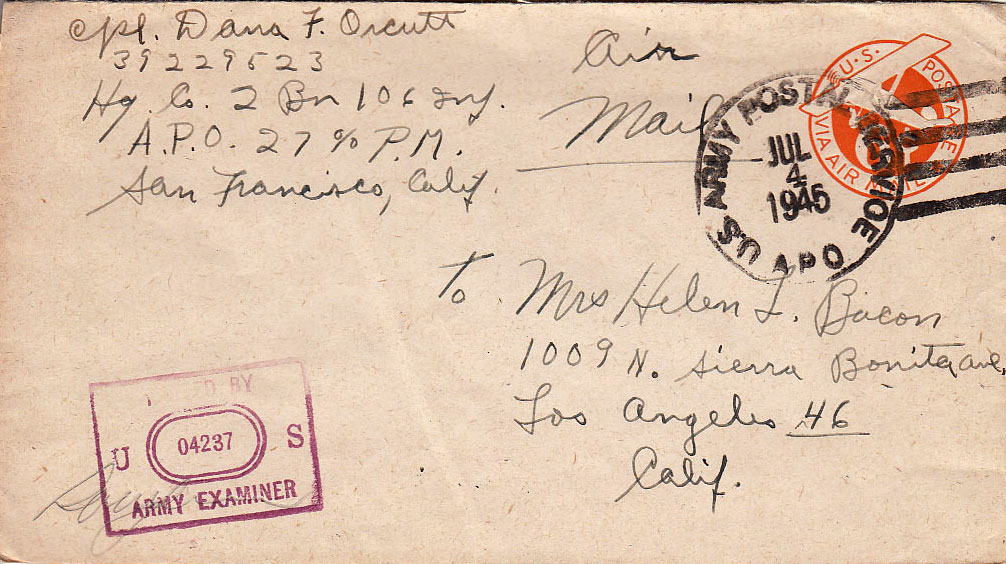 Cpl. Dana F. Orcutt
39229523
Hq. Co. 2 Bn 106 Inf.
A.P.O. 27 c/o P.M.
San Francisco, Calif.
Air
Mail
U.S. POSTAGE
VIA AIR MAIL
U.S. ARMY POSTAL SERVICE
JUL
4
1945
APO
To Mrs Helen L. Bacon
1009 N. Sierra Bonita ave,
Los Angeles 46
Calif.
D BY
U 04237 S
ARMY EXAMINER